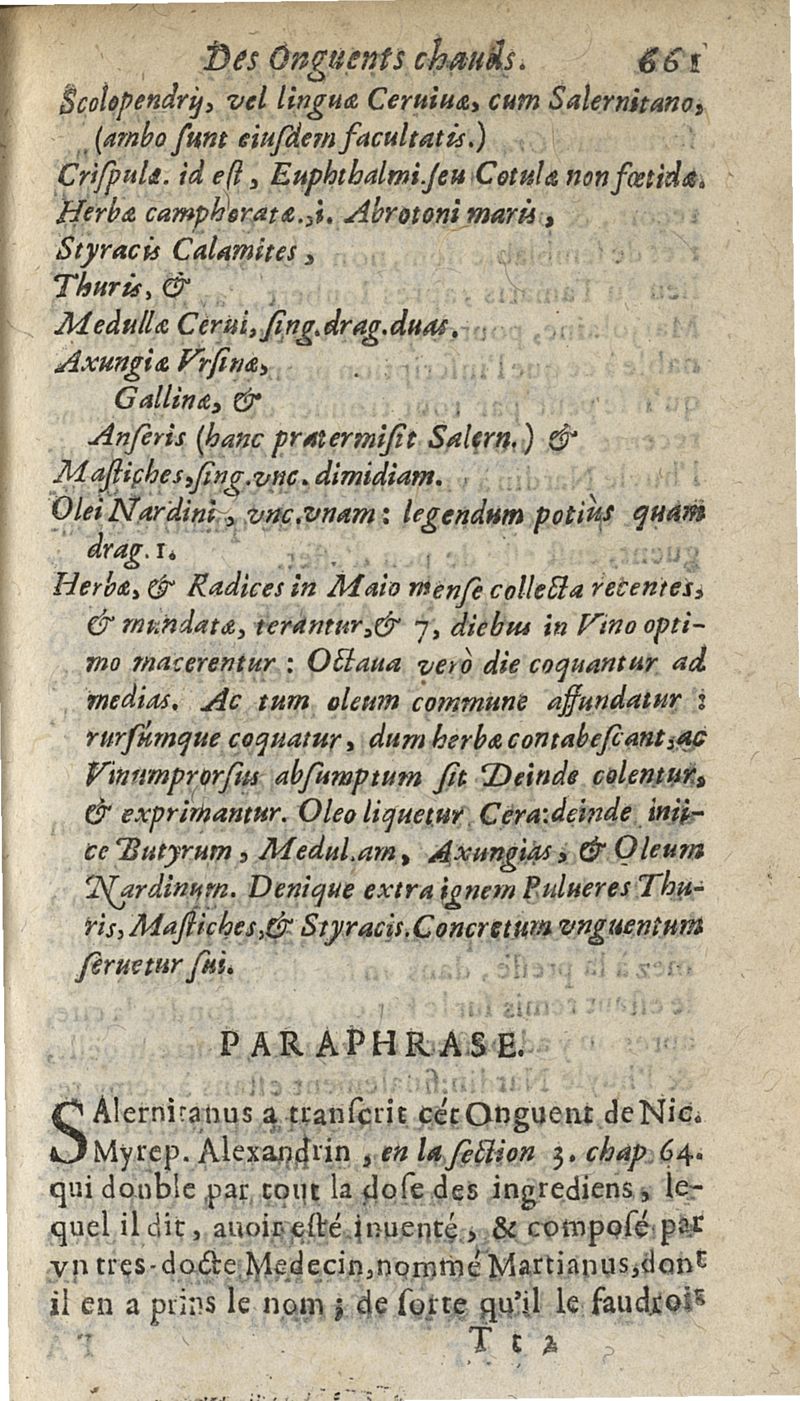 Des Onguents chauds. 661
Scolopendrij, vel linguæ Ceruiuæ, cum Salernitano,
(ambo ſunt eiuſdem facultatis.)
Criſpulæ. id eſt, Euphthalmi.ſeu Cotulæ non fœtidæ.
Herbæ camphoratæ.,i. Abrotoni maris,
Styracis Calamites,
Thuris, &
Medullæ Cerui, ſing.drag.duas.
Axungiæ Vrſinæ,
Gallinæ, &
Anſeris (hanc prætermiſit Salern.) &
Maſtiches,ſing.vnc.dimidiam.
Olei Nardini, vnc.vnam: legendum potiùs quam
drag.1.
Herbæ, & Radices in Maio menſe collecta recentes,
& mundatæ, terantur,& 7, diebus in Vino opti-
mo macerentur: Octaua verò die coquantur ad
medias. Ac tum oleum commune affundatur:
rurſúmque coquatur, dum herbæ contabeſcant,ac
Vinumprorſius abſumptum ſit Deinde colentur,
& exprimantur. Oleo liquetur Cera:deinde inij-
ce Butyrum, Medul.am, Axungias, & Oleum
Nardinum. Denique extra ignem Pulueres Thu-
ris, Maſtiches,& Styracis.Concretum vnguentum
ſeruetur ſui.
PARAPHRASE.
SAlernitanus a tranſcrit cét Onguent de Nic.
Myrep. Alexandrin, en la ſection 3. chap 64.
qui double par tout la doſe des ingrediens, le-
quel il dit, auoir eſté inuenté, & compoſé par
vn tres-docte Medecin,nommé Martianus,dont
il en a prins le nom; de ſorte qu'il le faudroit
Tt 2